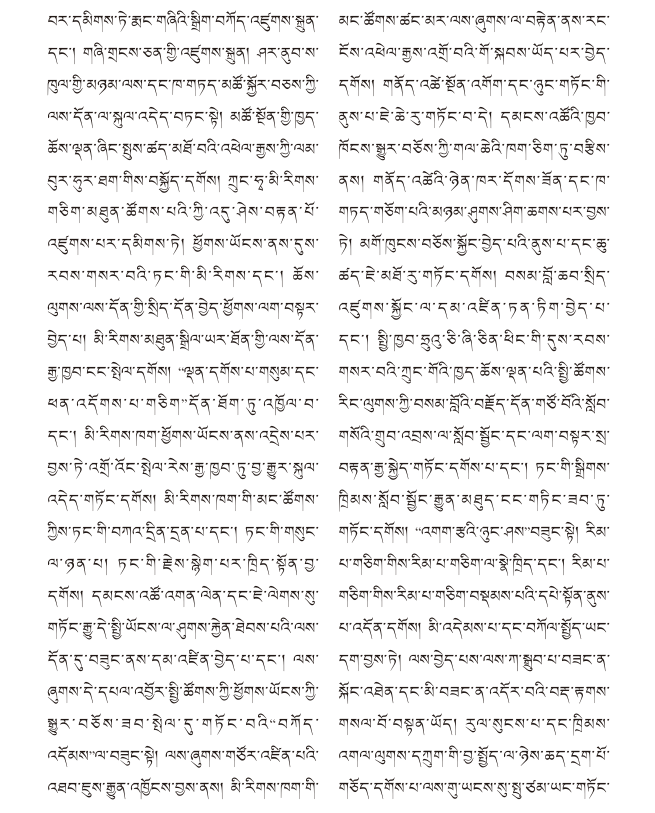 བར་དམིགས་ཏེ་རྨང་གཞིའི་སྒྲིག་བཀོད་འཛུགས་སྐྲུན་
དང་། གཞི་གྲངས་ཅན་གྱི་འཛུགས་སྐྲུན། ཤར་ནུབ་ས་
ཁུལ་གྱི་མཉམ་ལས་དང་ཁ་གཏད་མཚོ་སྐྱོར་བཅས་ཀྱི་
ལས་དོན་ལ་སྐུལ་འདེད་བཏང་སྟེ། མཚོ་སྔོན་གྱི་ཁྱད་
ཆོས་ལྡན་ཞིང་སྤུས་ཚད་མཐོ་བའི་འཕེལ་རྒྱས་ཀྱི་ལམ་
བུར་ཧུར་ཐག་གིས་བསྐྱོད་དགོས། ཀྲུང་ཧྭ་མི་རིགས་
གཅིག་མཐུན་ཚོགས་པའི་ཀྱི་འདུ་ཤེས་བརྟན་པོ་
འཛུགས་པར་དམིགས་ཏེ། ཕྱོགས་ཡོངས་ནས་དུས་
རབས་གསར་བའི་ཏང་གི་མི་རིགས་དང་། ཆོས་
ལུགས་ལས་དོན་གྱི་སྲིད་དོན་བྱེད་ཕྱོགས་ལག་བསྟར་
བྱེད་པ། མི་རིགས་མཐུན་སྒྲིལ་ཡར་ཐོན་གྱི་ལས་དོན་
རྒྱ་ཁྱབ་ངང་སྤེལ་དགོས། “ལྡན་དགོས་པ་གསུམ་དང་
ཕན་འདོགས་པ་གཅིག”དོན་ཐོག་ཏུ་འཁྱོལ་བ་
དང་། མི་རིགས་ཁག་ཕྱོགས་ཡོངས་ནས་འདྲེས་པར་
བྱས་ཏེ་འགྲོ་འོང་སྤེལ་རེས་རྒྱ་ཁྱབ་ཏུ་བྱ་རྒྱུར་སྐུལ་
འདེད་གཏོང་དགོས། མི་རིགས་ཁག་གི་མང་ཚོགས་
ཀྱིས་ཏང་གི་བཀའ་དྲིན་དྲན་པ་དང་། ཏང་གི་གསུང་
ལ་ཉན་པ། ཏང་གི་རྗེས་སྙེག་པར་ཁྲིད་སྟོན་བྱ་
དགོས། དམངས་འཚོ་འགན་ལེན་དང་ཇེ་ལེགས་སུ་
གཏོང་རྒྱུ་དེ་སྤྱི་ཡོངས་ལ་ཤུགས་རྐྱེན་ཐེབས་པའི་ལས་
དོན་དུ་བཟུང་ནས་དམ་འཛིན་བྱེད་པ་དང་། ལས་
ཞུགས་དེ་དཔལ་འབྱོར་སྤྱི་ཚོགས་ཀྱི་ཕྱོགས་ཡོངས་ཀྱི་
སྒྱུར་བཅོས་ཟབ་སྤེལ་དུ་གཏོང་བའི“བཀོད་
འདོམས”ལ་བཟུང་སྟེ། ལས་ཞུགས་གཙོར་འཛིན་པའི་
འཐབ་ཇུས་རྒྱུན་འཁྱོངས་བྱས་ནས། མི་རིགས་ཁག་གི་
མང་ཚོགས་ཚང་མར་ལས་ཞུགས་ལ་བརྟེན་ནས་རང་
ངོས་འཕེལ་རྒྱས་འགྲོ་བའི་གོ་སྐབས་ཡོད་པར་བྱེད་
དགོས། གནོད་འཚེ་སྔོན་འགོག་དང་ཉུང་གཏོང་གི་
ནུས་པ་ཇེ་ཆེ་རུ་གཏོང་བ་དེ། དམངས་འཚོའི་ཁྱབ་
ཁོངས་སྒྱུར་བཅོས་ཀྱི་གལ་ཆེའི་ཁག་ཅིག་ཏུ་བརྩིས་
ནས། གནོད་འཚེའི་ཉེན་ཁར་དོགས་ཟོན་དང་ཁ་
གཏད་གཅོག་པའི་མཉམ་ཤུགས་ཤིག་ཆགས་པར་བྱས་
ཏེ། མགོ་ཁུངས་བཅོས་སྐྱོང་བྱེད་པའི་ནུས་པ་དང་ཆུ་
ཚད་ཇེ་མཐོ་རུ་གཏོང་དགོས། བསམ་བློ་ཆབ་སྲིད་
འཛུགས་སྐྱོང་ལ་དམ་འཛིན་ཏན་ཏིག་བྱེད་པ་
དང་། སྤྱི་ཁྱབ་ཧྲུའུ་ཅི་ཞི་ཅིན་ཕིང་གི་དུས་རབས་
གསར་བའི་ཀྲུང་གོའི་ཁྱད་ཆོས་ལྡན་པའི་སྤྱི་ཚོགས་
རིང་ལུགས་ཀྱི་བསམ་བློའི་བརྗོད་དོན་གཙོ་བོའི་སློབ་
གསོའི་གྲུབ་འབྲས་ལ་སློབ་སྦྱོང་དང་ལག་བསྟར་སྲ་
བརྟན་རྒྱ་སྐྱེད་གཏོང་དགོས་པ་དང་། ཏང་གི་སྒྲིགས་
ཁྲིམས་སློབ་སྦྱོང་རྒྱུན་མཐུད་ངང་གཏིང་ཟབ་ཏུ་
གཏོང་དགོས། “འགག་རྩའི་ཉུང་ཤས”བཟུང་སྟེ། རིམ་
པ་གཅིག་གིས་རིམ་པ་གཅིག་ལ་སྣེ་ཁྲིད་དང་། རིམ་པ་
གཅིག་གིས་རིམ་པ་གཅིག་བསྡམས་པའི་དཔེ་སྟོན་ནུས་
པ་འདོན་དགོས། མི་འདེམས་པ་དང་བཀོལ་སྤྱོད་ཡང་
དག་བྱས་ཏེ། ལས་བྱེད་པས་ལས་ཀ་སྒྲུབ་པ་བཟང་ན་
སྐོང་འཐེན་དང་མི་བཟང་ན་འདོར་བའི་བརྡ་རྟགས་
གསལ་པོ་བསྟན་ཡོད། རུལ་སུངས་པ་དང་ཁྲིམས་
འགལ་ལུགས་དཀྲུག་གི་བྱ་སྤྱོད་ལ་ཉེས་ཆད་དྲག་པོ་
གཅོད་དགོས་པ་ལས་གུ་ཡངས་སུ་སྤུ་ཙམ་ཡང་གཏོང་